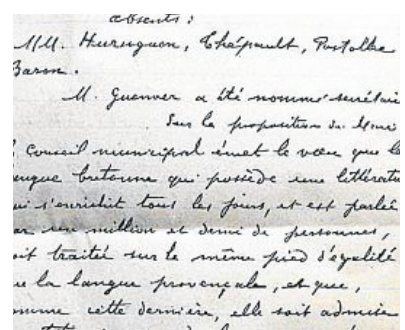 absents:
MM. Huruguen, Chépault, Postollec
Baron.
M. Guenver a été nommé secrétaire
Sur la proposition du Maire
Conseil municipal émet le vœu que la
langue bretonne qui possède une littérature
qui s'enrichit tous les jours, et est parlée
par un million et demi de personnes,
soit traitée sur le même pied d'égalité
que la langue provençale, et que,
comme cette dernière, elle soit admise